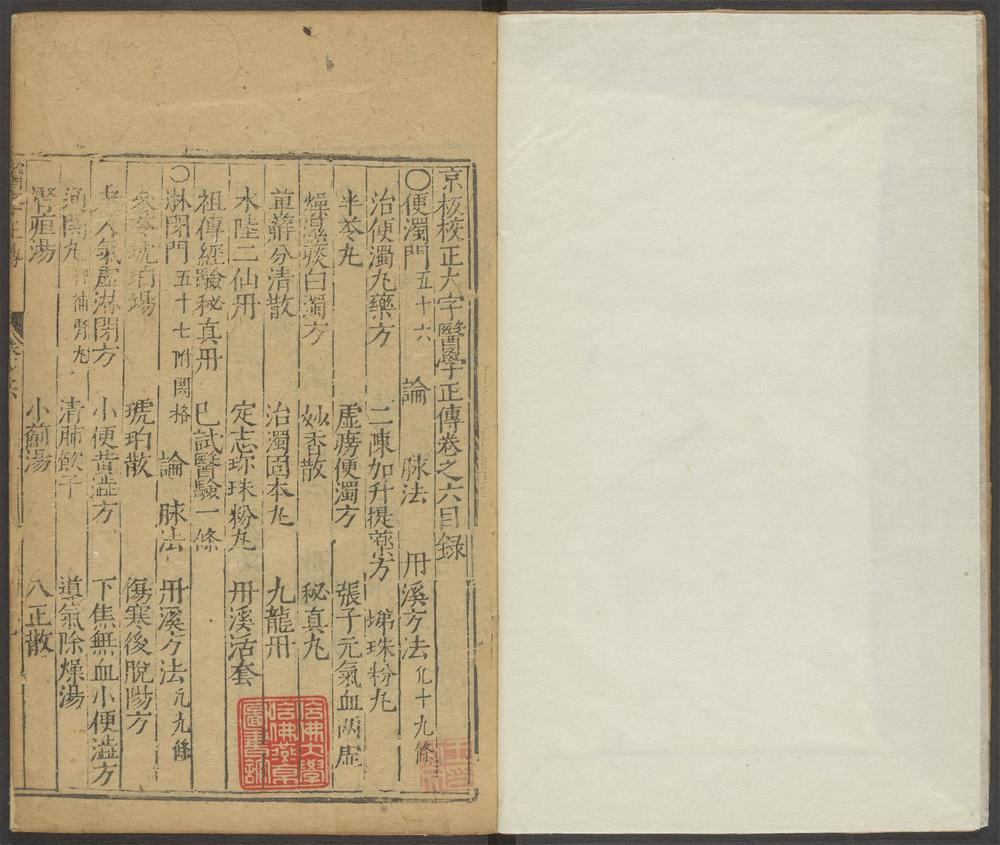 京板校正大字醫學正傳卷之六目錄
○便濁門 五十六 論 脉法 丹溪方法 凡十九條
治便濁丸藥方 二陳加升提藥方 珶珠粉丸
半苓丸 虛癆便濁方 張子元氣血兩虛
燥濕痰白濁方 妙香散 秘真丸
萆薢分清散 治濁固本丸 九龍丹
水陸二仙丹 定志珍珠粉丸 丹溪活套
祖傳經驗秘真丹 已試醫驗一條
○淋閉門 五十七 附関格 論 脉法 丹溪方法 凡九條
茯苓琥珀湯 琥珀散 傷寒後脫陽方
老人氣虛淋閉方 小便黃澁方 下焦無血小便澁方
通関丸 補腎丸 清肺飲子 導氣除燥湯
腎疸湯 小薊湯 八正散
哈佛大學哈佛燕京圖書館